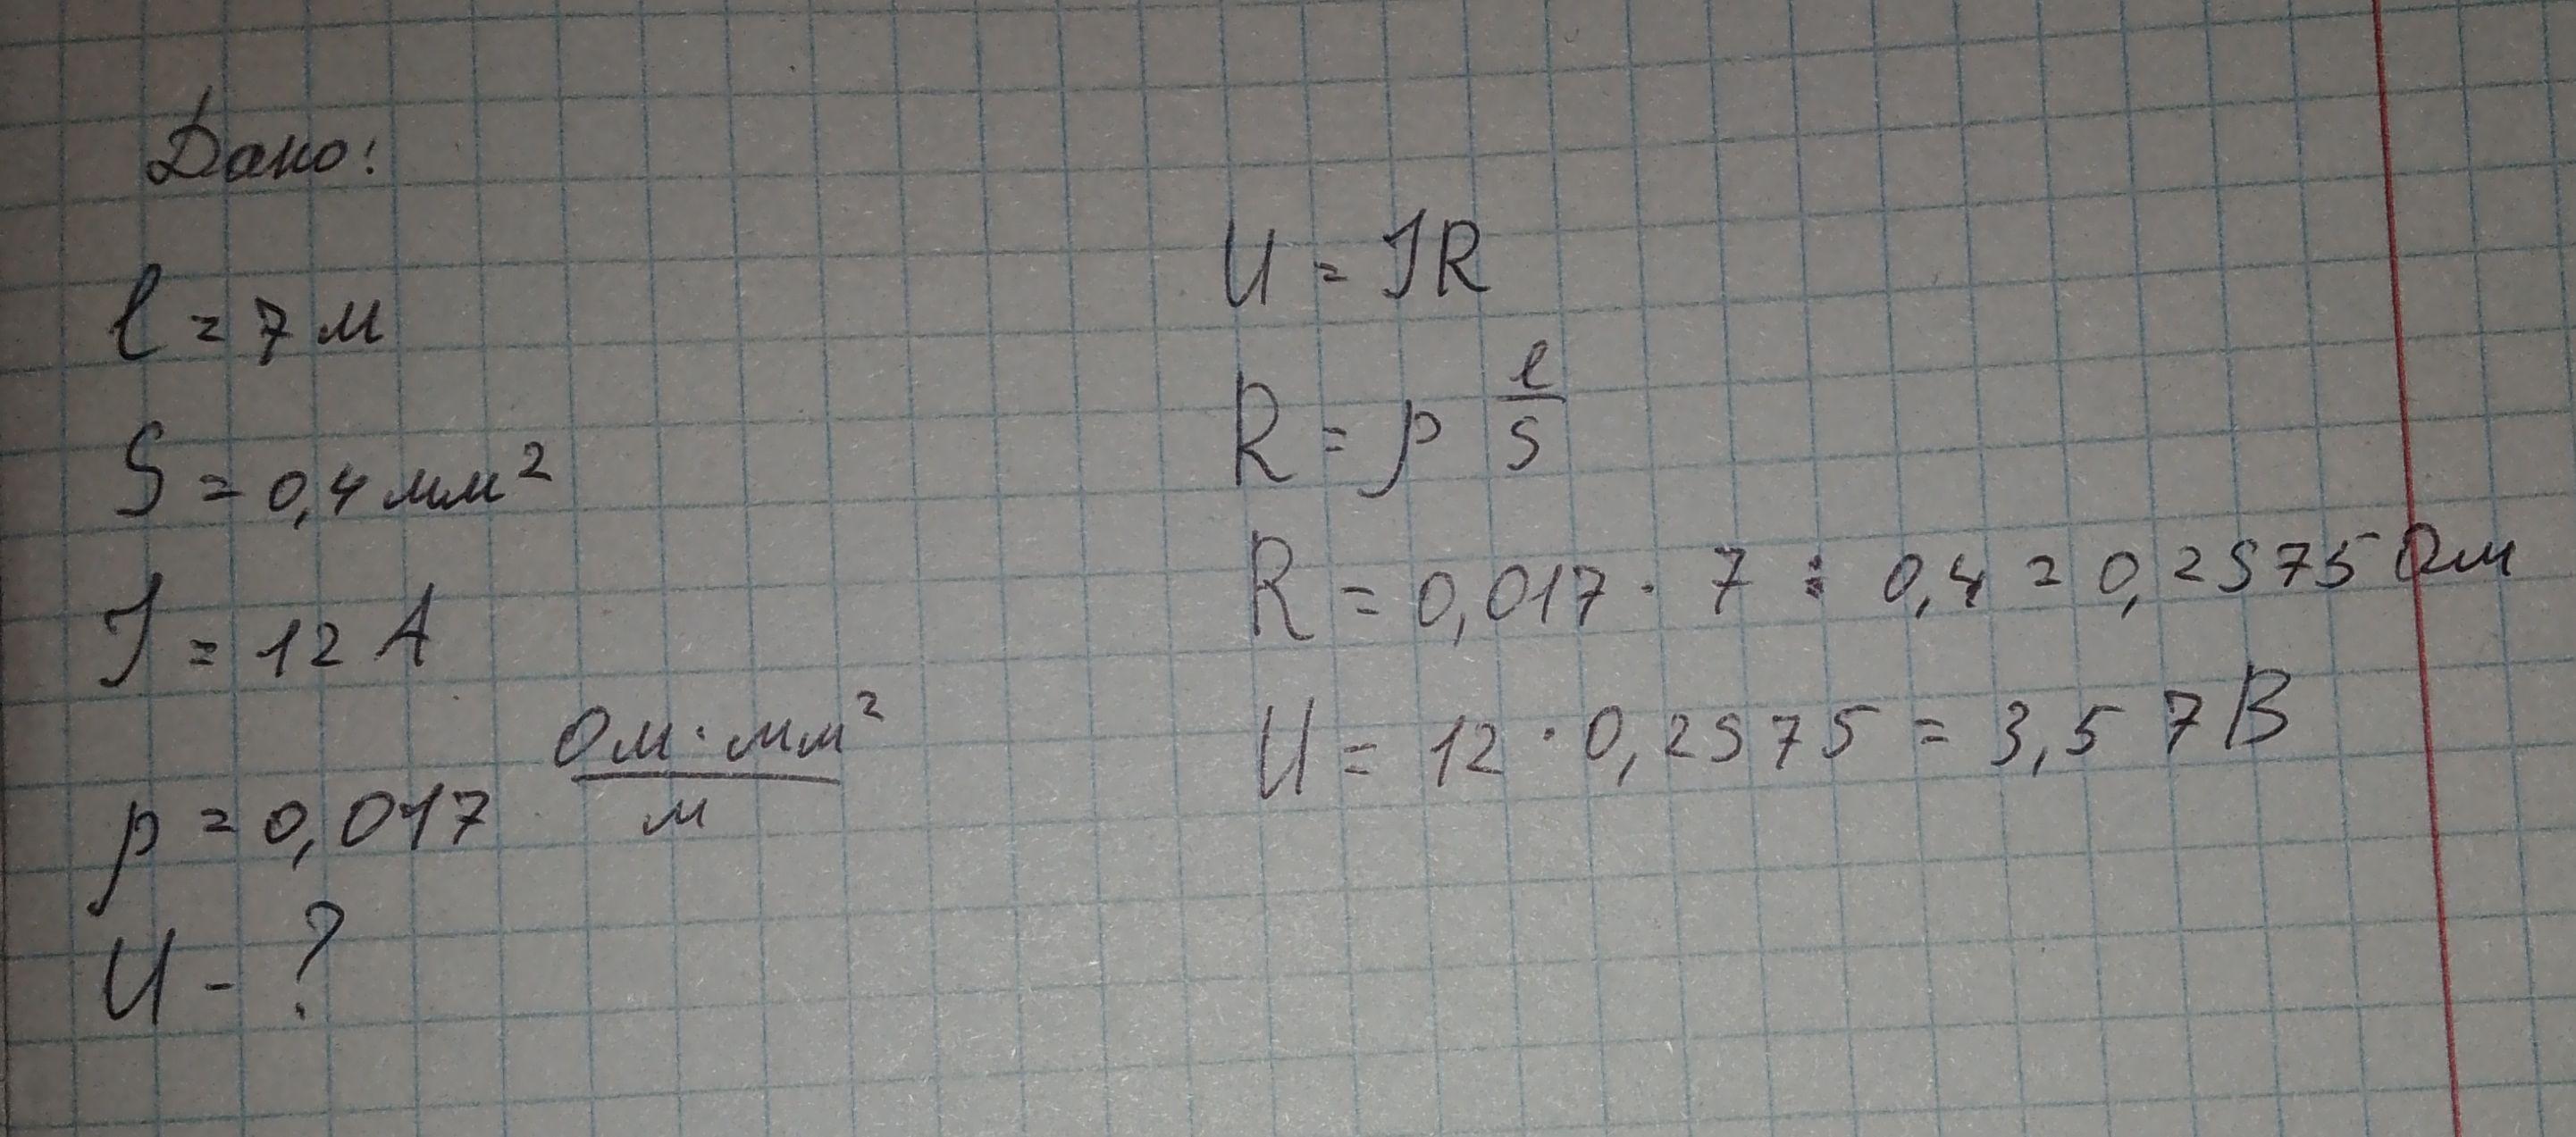 Дано:
l = 7 м
S = 0,4 мм²
I = 12 А
ρ = 0,017 Ом·мм²/м
U - ?
U = IR
R = ρ l/S
R = 0,017 · 7 : 0,4 = 0,2975 Ом
U = 12 · 0,2975 = 3,57 В